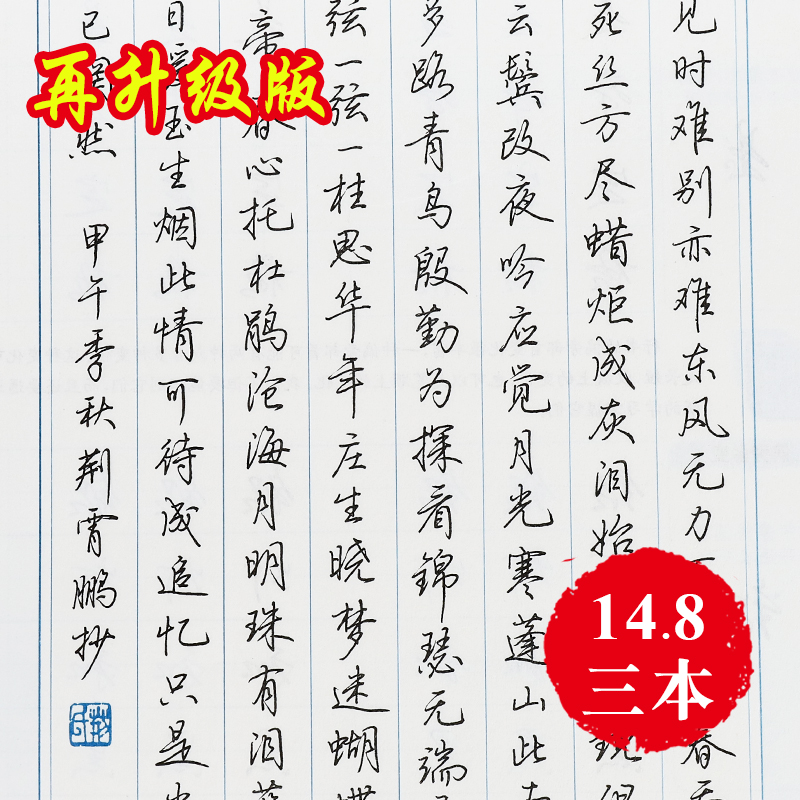 再升级版
见时难别亦难东风无力 春
死丝方尽蜡炬成灰泪始
云鬓改夜吟应觉月光寒蓬山此
多路青鸟殷勤为探看錦瑟无端
弦一弦一柱思华年庄生晓梦迷蝴
帝春心托杜鹃沧海月明珠有泪
日暖玉生烟此情可待成追忆只是
已惘然 甲午季秋荆霄鹏抄
14.8
三本